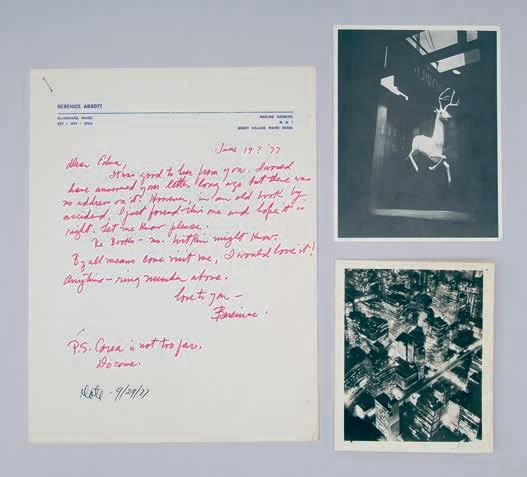 BERENICE ABBOTT
BLANCHARD, MAINE
MAILING ADDRESS:
June 19? '77
Dear Edna,
It was good to hear from you. I would
have answered your letter long ago but there was
no address on it. However, in an old book by
accident, I just found this one and hope it is
right. Let me know please.
Re Books - no. Witkin might know.
By all means come visit me, I would love it!
Anytime - ring number above.
Love to you -
Berenice.
P.S. Corea is not too far.
Do come.
- 9/29/77